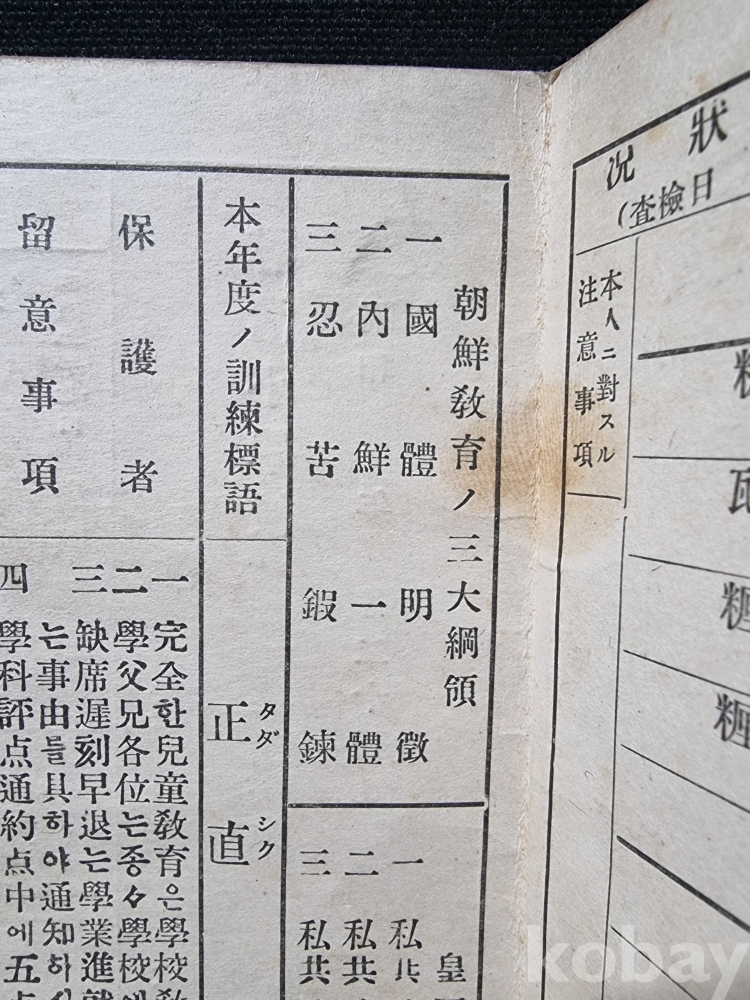 狀況
日檢查)
本人ニ對スル
注意事項
粁
瓦
糎
糎
朝鮮敎育ノ三大綱領
一 國體明徵
二 內鮮一體
三 忍苦鍛鍊
皇
一 私共
二 私共
三 私共
本年度ノ訓練標語
正直
タダシク
保護者
留意事項
一 完全한兒童敎育은學校敎
二 學父兄各位는종々學校에
三 缺席遲刻早退는學業進就
는事由를具하야通知하
四 學科評点通約点中에五点
kobay